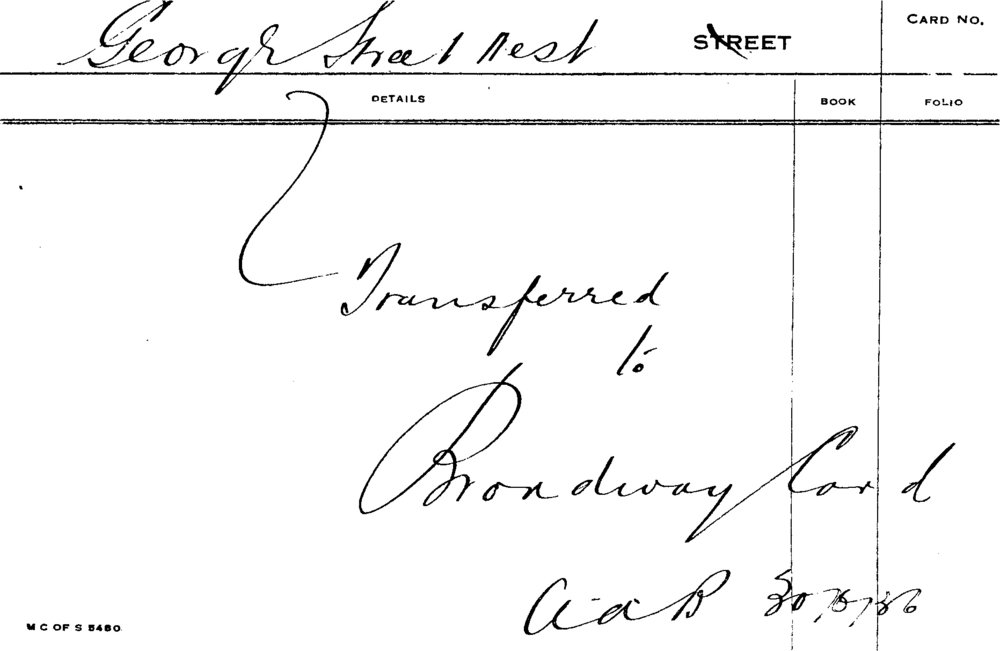 George Street West STREET CARD NO.
DETAILS BOOK FOLIO
Transferred
to
Broadway Card
M C OF S 5480